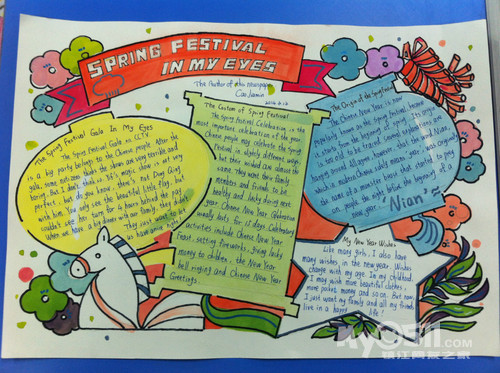 SPRING FESTIVAL
IN MY EYES
The Author of the newspaper
Cao Jiamin
The Spring Festival Gala In My Eyes
The Spring Festival Gala on CCTV
is a big party belongs to the Chinese people. After the
gala, some netizens think the shows are very terrible and
boring. But I don't think so. It's magic show is not very
perfect, but do you know, there is not Dong Qing
with him. You only see the beautiful little flag, but
couldn't see the tang for hours behind the
When we have a big dinner with our family, they didn't.
They only want to let
us have
The Custom of Spring Festival
The Spring Festival Celebration is the
most important celebration of the year.
Chinese people may celebrate the Spring
Festival in slightly different ways
but their wishes are almost the
same, they want their family
members and friends to be
healthy and lucky during next
year. Chinese New Year Celebration
usually lasts for 15 days. Celebratory
activities include Chinese New Year
Feast, setting firecrackers, giving lucky
money to children, the New Year
bell ringing and Chinese New Year
Greetings.
The Origin of the Spring Festival
The Chinese New Year is now
popularly known as the Spring Festival because
it starts from the beginning of spring. Its origin
is too old to be traced. Several explanations are
hanging around. All agree, however, that the word Nian,
which in modern Chinese solely means "year", was originally
the name of a monster beast that started to prey
on people the night before the beginning of a
new year.
"Nian"
My New Year Wishes
Like many girls, I also have
many wishes in the new year. Wishes
change with my age. In my childhood
I may wish more beautiful clothes,
more pocket money and so on. But now,
I just want my family and all my friends
live in a happy life!
my0511.com
镇江网友之家